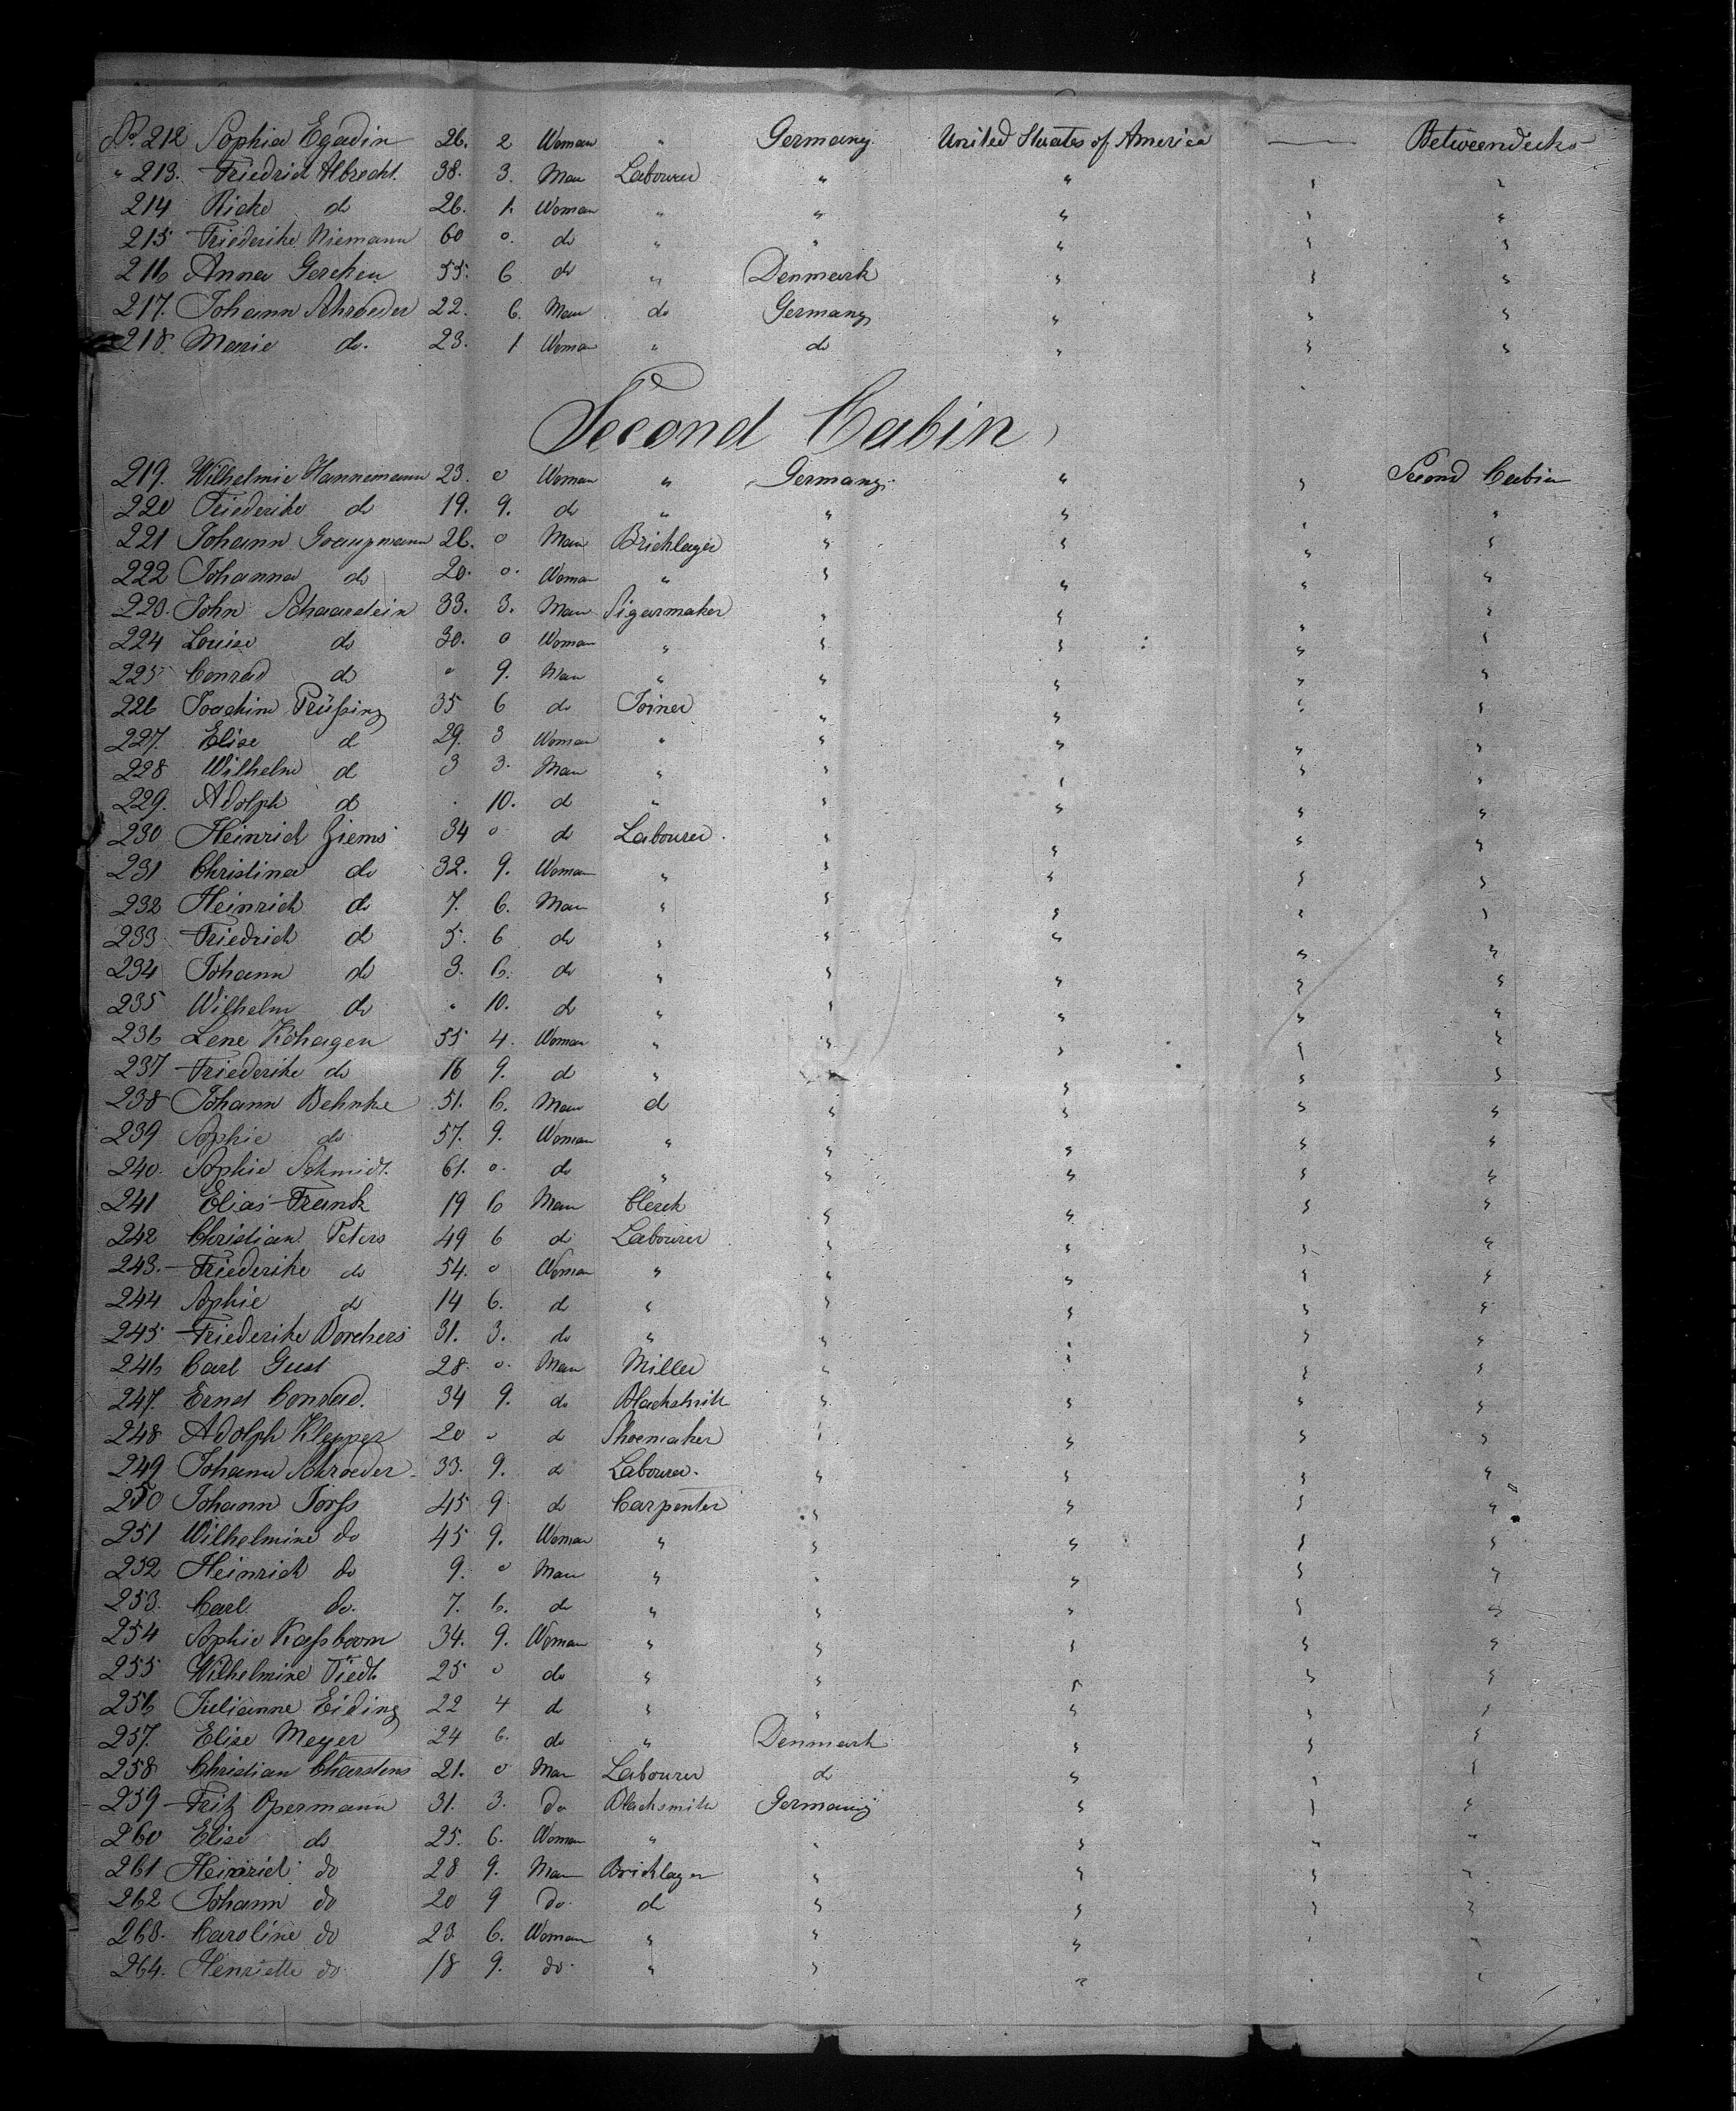 No. 212 Sophia Egadin 26. 2 Woman " Germany United Staates of America — Betweendecks
" 213. Friedrich Albrecht. 38. 3. Man Labourer " " " "
214 Ricke do 26. 1. Woman " " " " "
215 Friederike Niemann 60 0. do " " " " "
216 Anna Gercken 55. 6 do " Denmark " " "
217. Johann Schroeder 22. 6. Man do Germany " " "
218. Marie do. 23. 1 Woman " do " " "
Second Cabin
219. Wilhelmie Hannemann 23. 0 Woman " Germany. " " Second Cabin
220 Friederike do 19. 9. do " " " " "
221 Johann Graupmann 26. 0 Man Bricklager " " " "
222 Johanna do 20. 0. Woman " " " " "
223. John Schaarstein 33. 3. Man Sigarmaker " " " "
224 Louise do 30. 0 Woman " " " " "
225 Conrad do " 9. Man " " " " "
226 Joachim Prüßing 35 6 do Joiner " " " "
227. Elise d 29. 3 Woman " " " " "
228 Wilhelm d 3 3. Man " " " " "
229. Adolph d . 10. d " " " " "
230 Heinrich Ziems 34 0 do Labourer. " " " "
231 Christina do 32. 9. Woman " " " " "
232 Heinrich do 7. 6. Man " " " " "
233 Friedrich d 5. 6 do " " " " "
234 Johann do 3. 6. do " " " " "
235 Wilhelm do " 10. do " " " " "
236 Lene Köhagen 55 4. Woman " " " " "
237 Friederike do 16 9. d " " " " "
238 Johann Behnke 51. 6. Man d " " " "
239 Sophie do 57. 9. Woman " " " " "
240. Sophie Schmidt. 61. 0. do " " " " "
241 Elias Frank 19 6 Man Clerck " " " "
242 Christian Peters 49 6 do Labourer " " " "
243. Friederike do 54. 0 Woman " " " " "
244 Sophie do 14 6. d " " " " "
245 Friederike Borchers 31. 3. do " " " " "
246 Carl Gust 28. 0. Man Miller " " " "
247. Ernst Conrad. 34 9. do Blackshmith " " " "
248 Adolph Klepper 20 0 d Shoemaker " " " "
249 Johann Schroeder. 33. 9. d Labourer. " " " "
250 Johann Jorfs 45 9 d Carpenter " " " "
251 Wilhelmine do 45 9. Woman " " " " "
252 Heinrich do 9. 0 Man " " " " "
253. Carl do. 7. 6. do " " " " "
254 Sophie Kaßboom 34. 9. Woman " " " " "
255 Wilhelmine Tiedt 25 0 do " " " " "
256 Julianne Eiding 22 4 d " " " " "
257. Elise Meyer 24 6. do " Denmark " " "
258 Christian Charstens 21. 0 Man Labourer do " " "
259 Fritz Opermann 31. 3. do Blacksmith Germany " " "
260 Elise do 25. 6. Woman " " " " "
261 Heinrich do 28 9. Man Bricklager " " " "
262 Johann do 20 9 do. d " " " "
263. Caroline do 23 6. Woman " " " " "
264. Henriette do 18 9. do. " " " " "